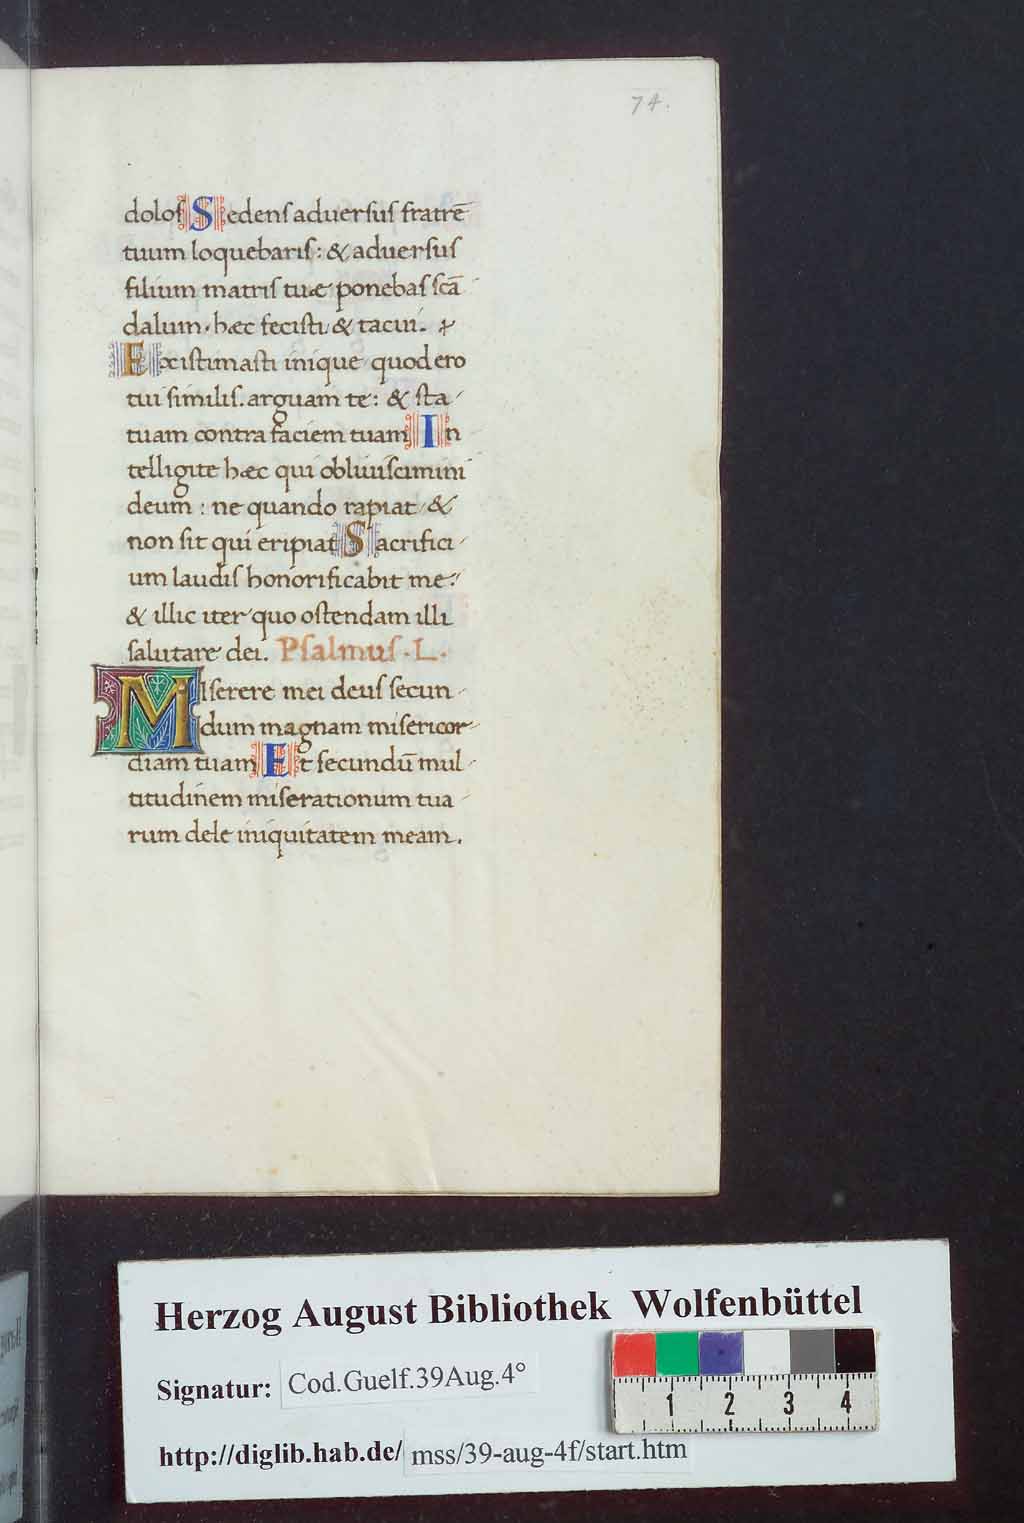 74.
dolos Sedens adversus fratrē
tuum loquebaris: & adversus
filium matris tuæ ponebas scā
dalum. hæc fecisti & tacui.
Existimasti inique quod ero
tui similis. arguam te: & sta
tuam contra faciem tuam In
telligite hæc qui obliviscimini
deum: ne quando rapiat &
non sit qui eripiat Sacrifici
um laudis honorificabit me:
& illic iter quo ostendam illi
salutare dei. Psalmus. L.
Miserere mei deus secun
dum magnam misericor
diam tuam Et secundū mul
titudinem miserationum tua
rum dele iniquitatem meam.
Herzog August Bibliothek Wolfenbüttel
Signatur: Cod.Guelf.39Aug.4°
1 2 3 4
http://diglib.hab.de/ mss/39-aug-4f/start.htm